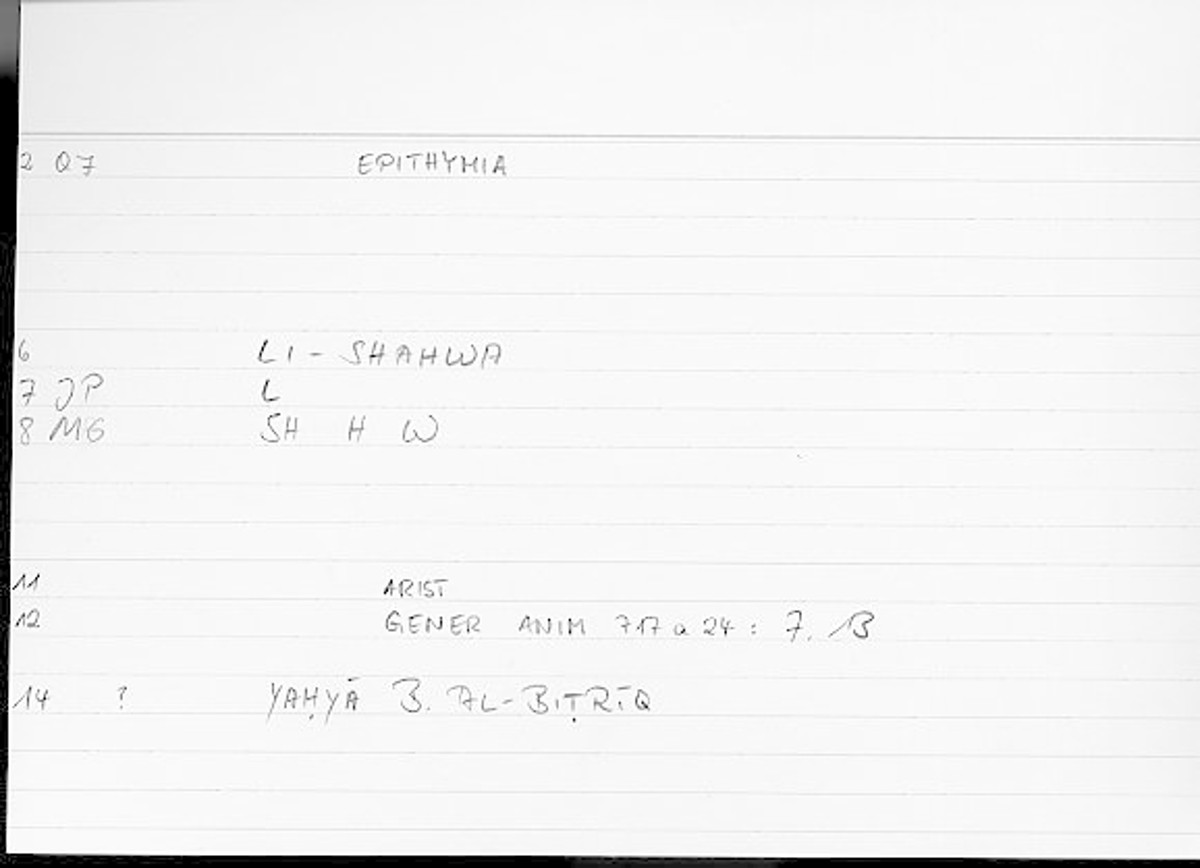 2 Q7 EPITHYMIA
6 LI - SHAHWA
7 JP L
8 MG SH H W
11 ARIST
12 GENER ANIM 717 a 24 : 7. 13
14 ? YAḤYĀ B. AL-BIṬRĪQ